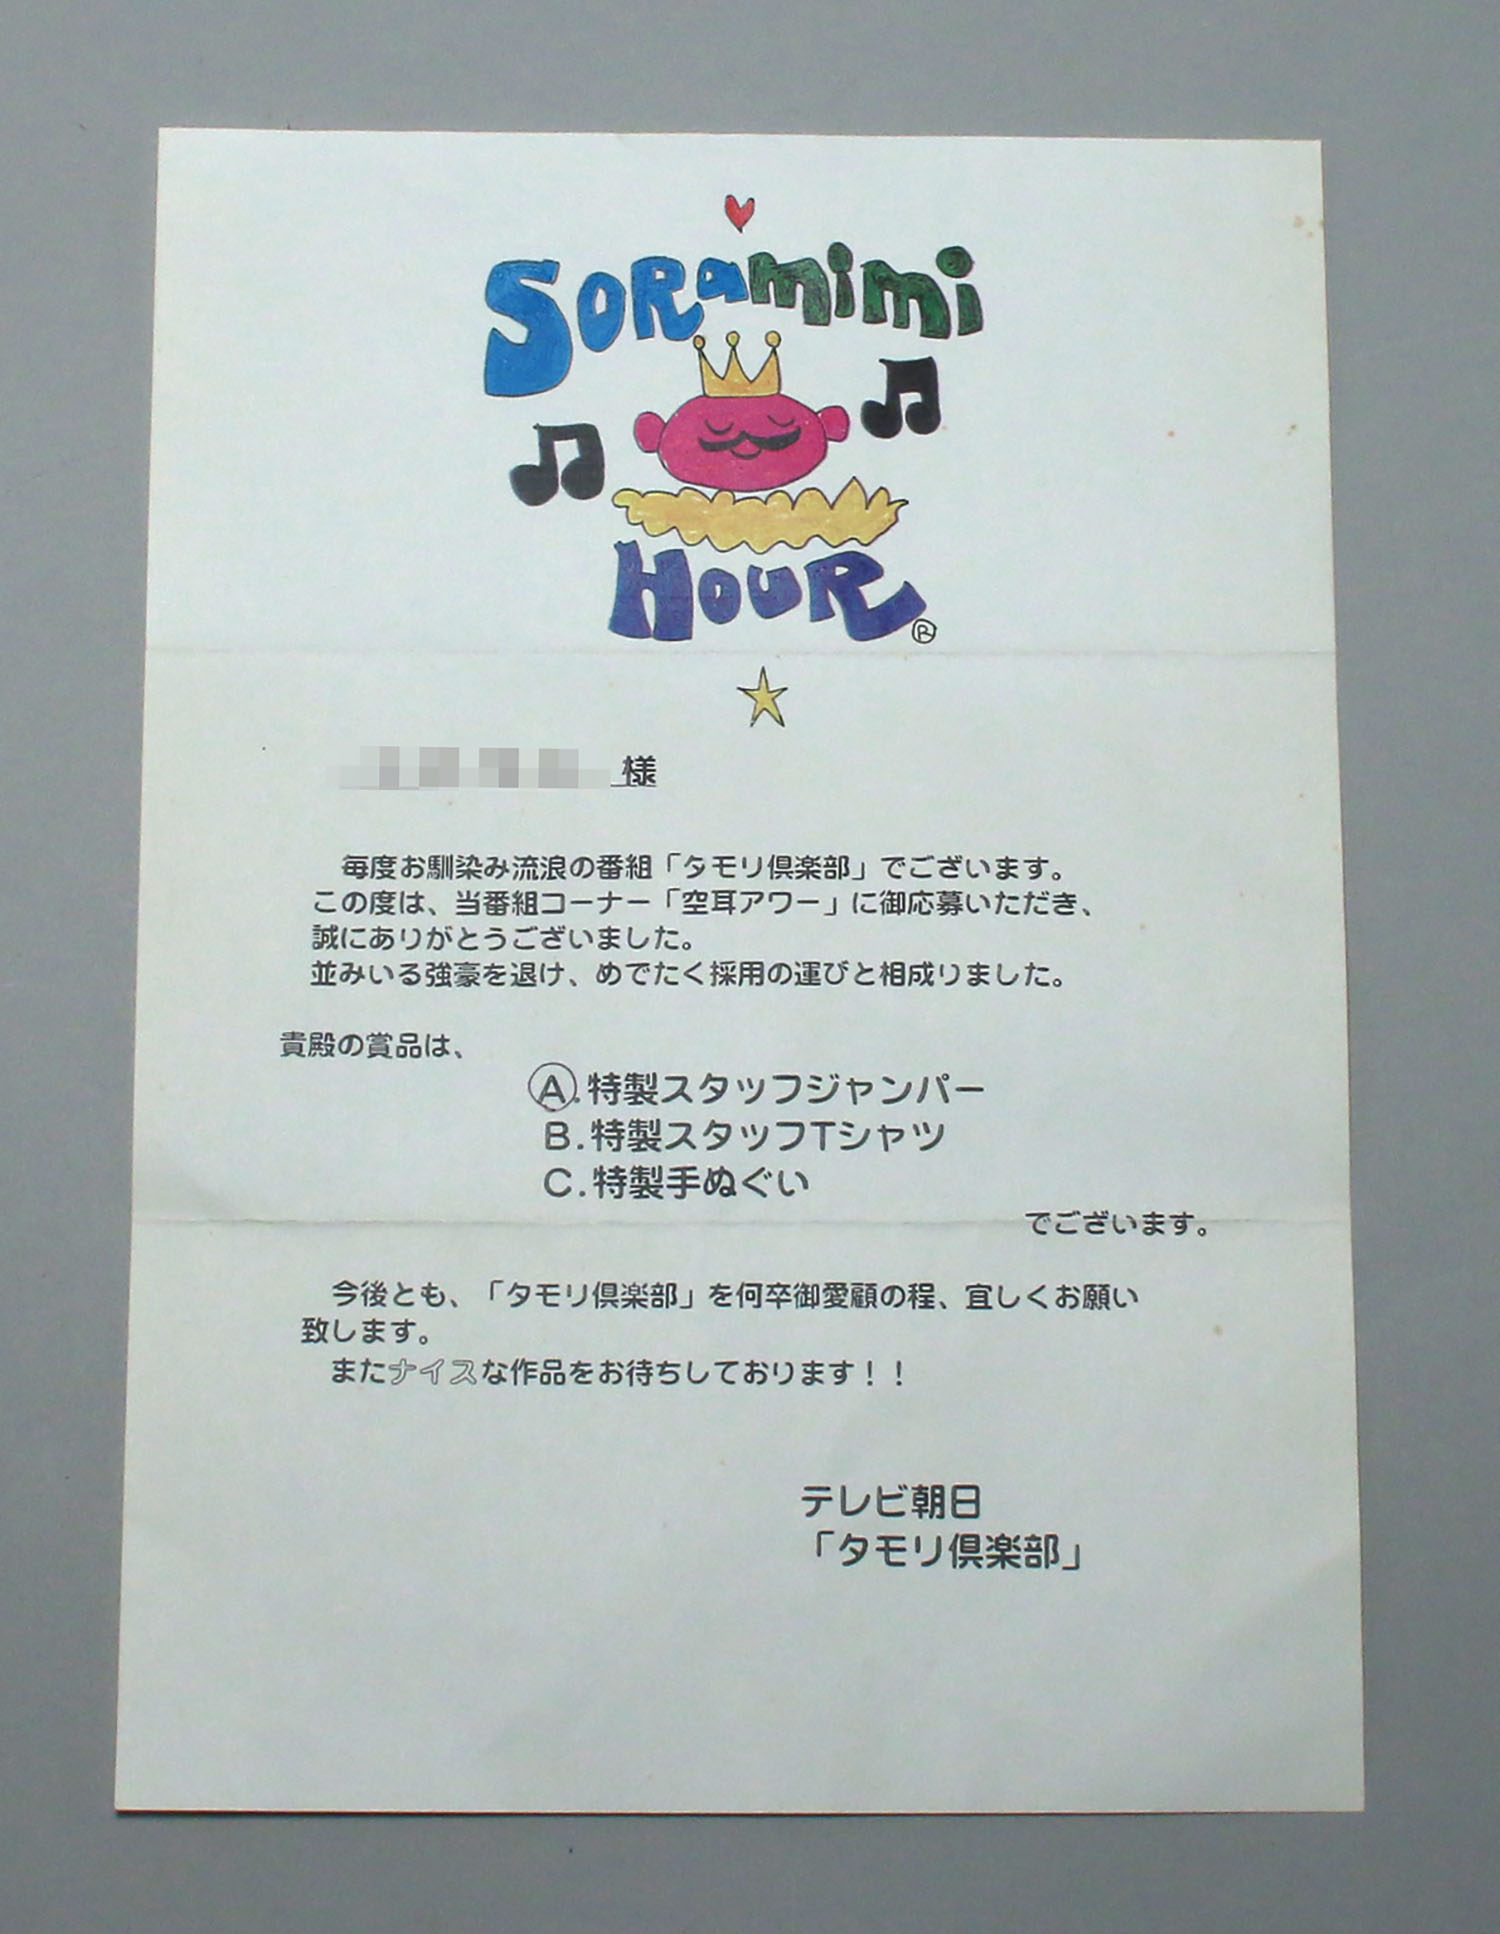 SORamimi
HOUR®
様
毎度お馴染み流浪の番組「タモリ倶楽部」でございます。
この度は、当番組コーナー「空耳アワー」に御応募いただき、
誠にありがとうございました。
並みいる強豪を退け、めでたく採用の運びと相成りました。
貴殿の賞品は、
A.特製スタッフジャンパー
B.特製スタッフTシャツ
C.特製手ぬぐい
でございます。
今後とも、「タモリ倶楽部」を何卒御愛顧の程、宜しくお願い
致します。
またナイスな作品をお待ちしております！！
テレビ朝日
「タモリ倶楽部」